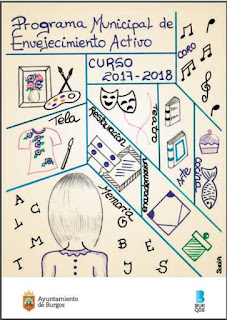 Programa Municipal de
Envejecimiento Activo
CURSO
2017-2018
CORO
Teatro
Restauración
Tela
encuadernación
Memoria
Arte
A
L
C
M
G
E
T
I
B
J
S
Ayuntamiento
de Burgos
BUR
GOS